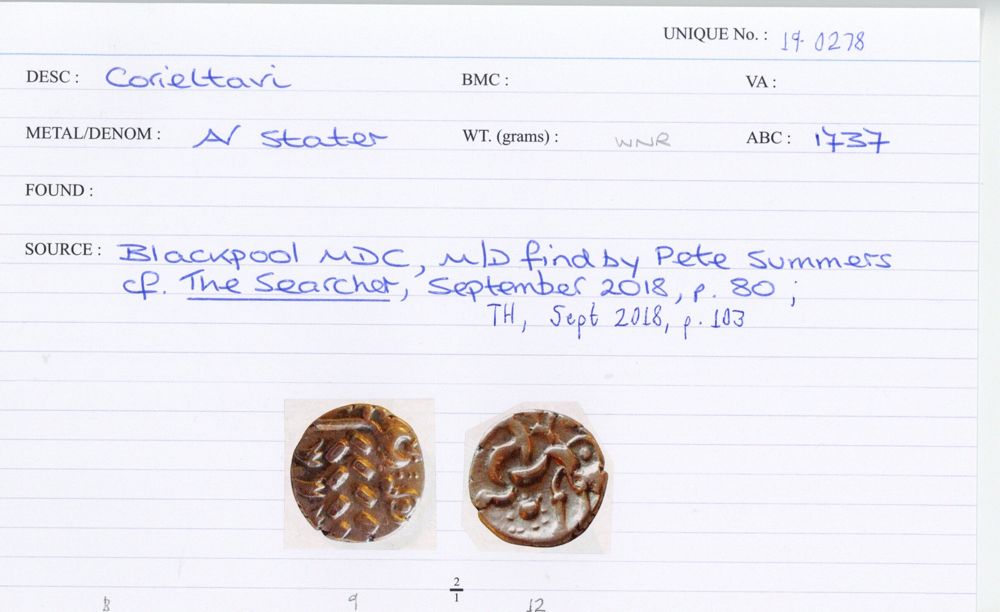 UNIQUE No. : 19.0278
DESC : Corieltavi BMC : VA :
METAL/DENOM : AV Stater WT. (grams) : WNR ABC : 1737
FOUND :
SOURCE : Blackpool MDC, M/D find by Pete Summers
cf. The Searcher, September 2018, p. 80 ;
TH, Sept 2018, p. 103
2
1
B 9 12